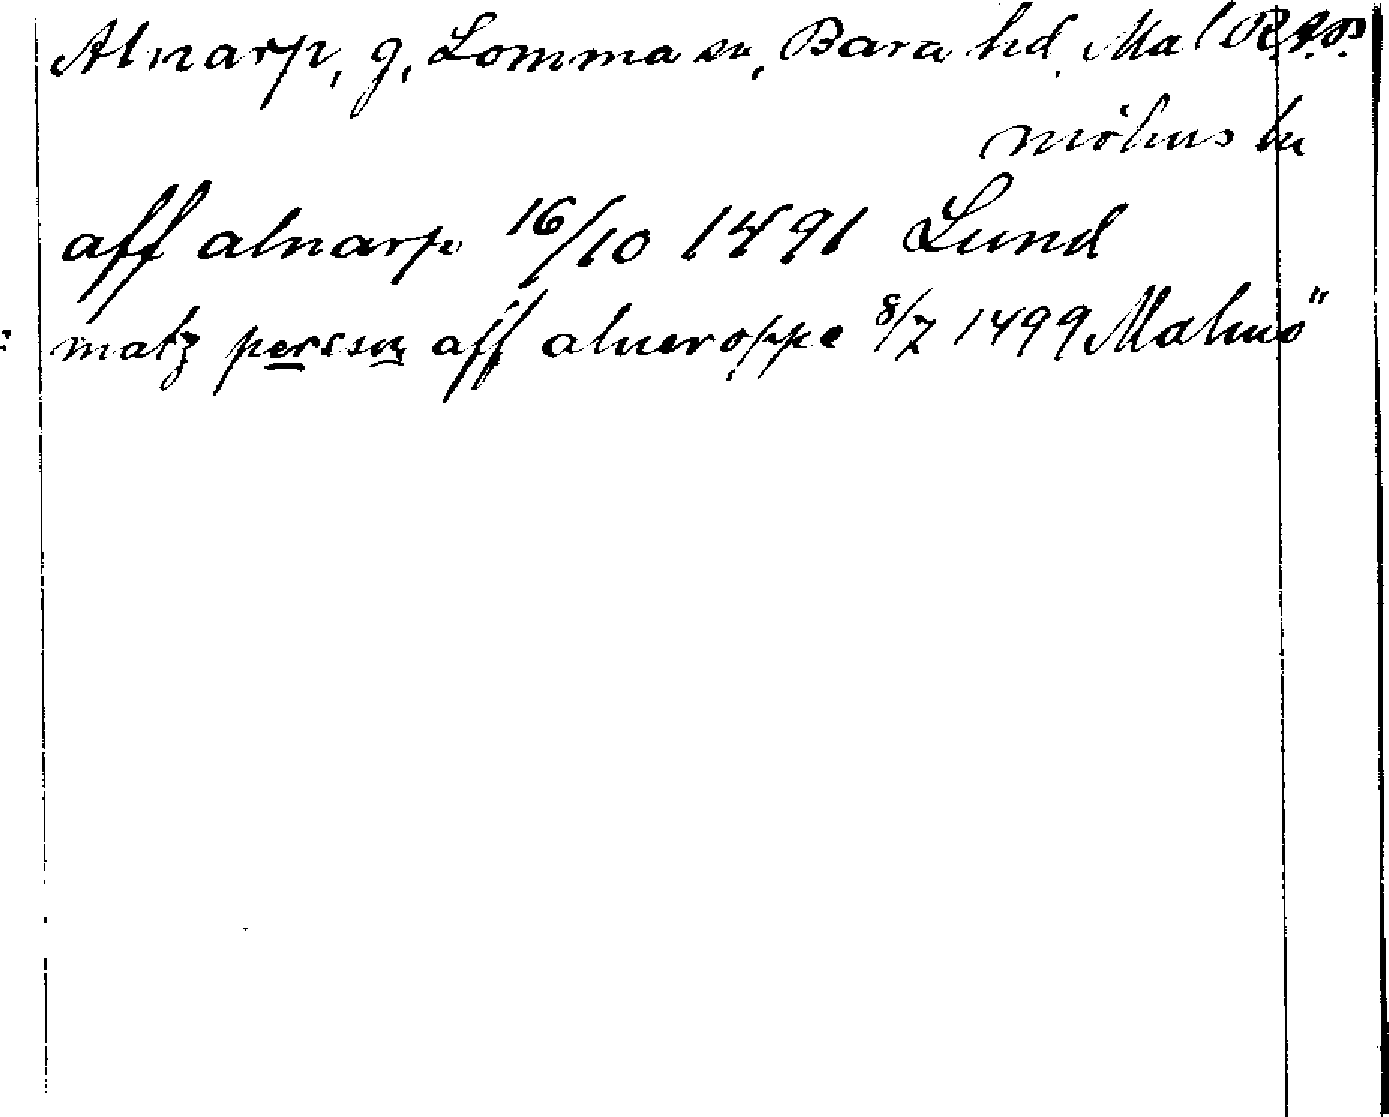 Alnarp, g, Lomma sn, Bara hd. Mal R.A.P.
möhus ln
aff alnarp 16/10 1491 Lund
matz persson aff alneroppe 8/7 1499 Malmö "